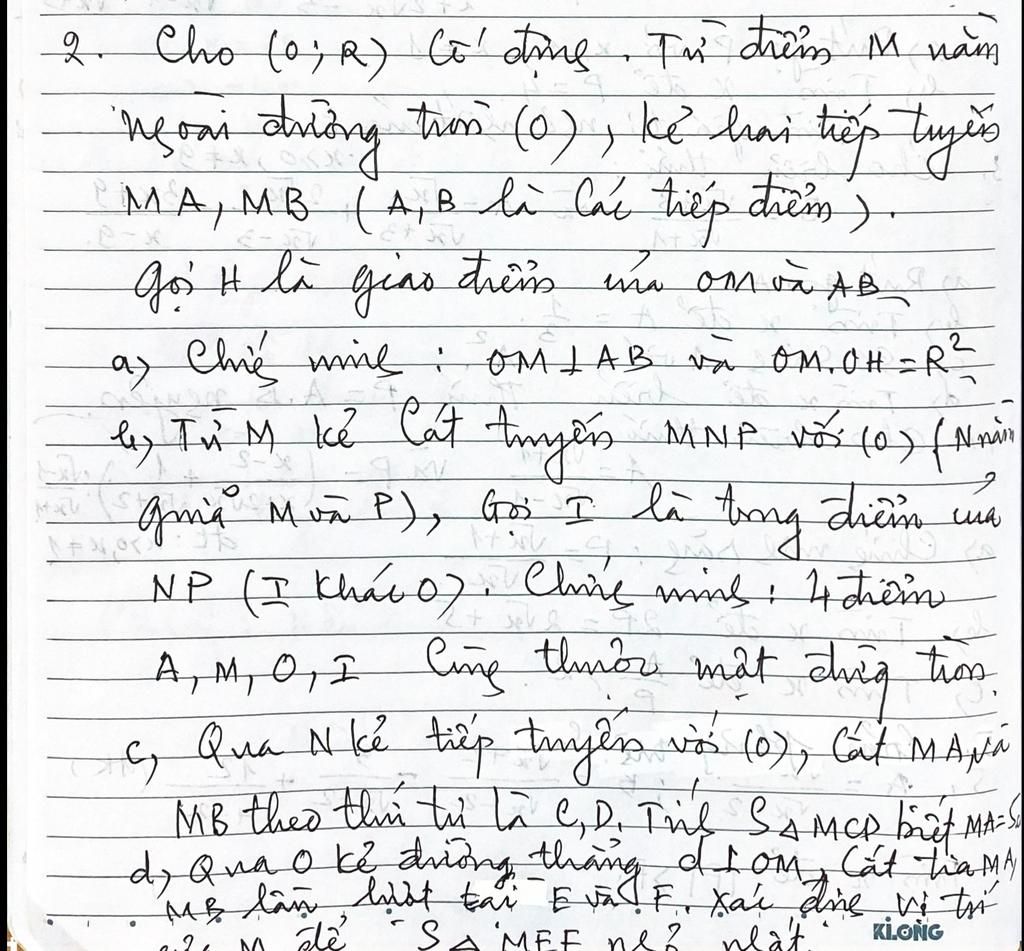 2. Cho (O; R) cố định. Từ điểm M nằm
ngoài đường tròn (O), kẻ hai tiếp tuyến
MA, MB (A, B là các tiếp điểm).
Gọi H là giao điểm của OM và AB
a, Chứng minh: OM ⊥ AB và OM.OH = R²
b, Từ M kẻ cát tuyến MNP với (O) (N nằm
giữa M và P), Gọi I là trung điểm của
NP (I khác O). Chứng minh: 4 điểm
A, M, O, I cùng thuộc một đường tròn.
c, Qua N kẻ tiếp tuyến với (O), cắt MA và
MB theo thứ tự là C, D. Tính S Δ MCD biết MA=5
d, Qua O kẻ đường thẳng d ⊥ OM, cắt tia MA,
MB lần lượt tại E và F. Xác định vị trí
của M để S Δ MEF nhỏ nhất.
KLONG